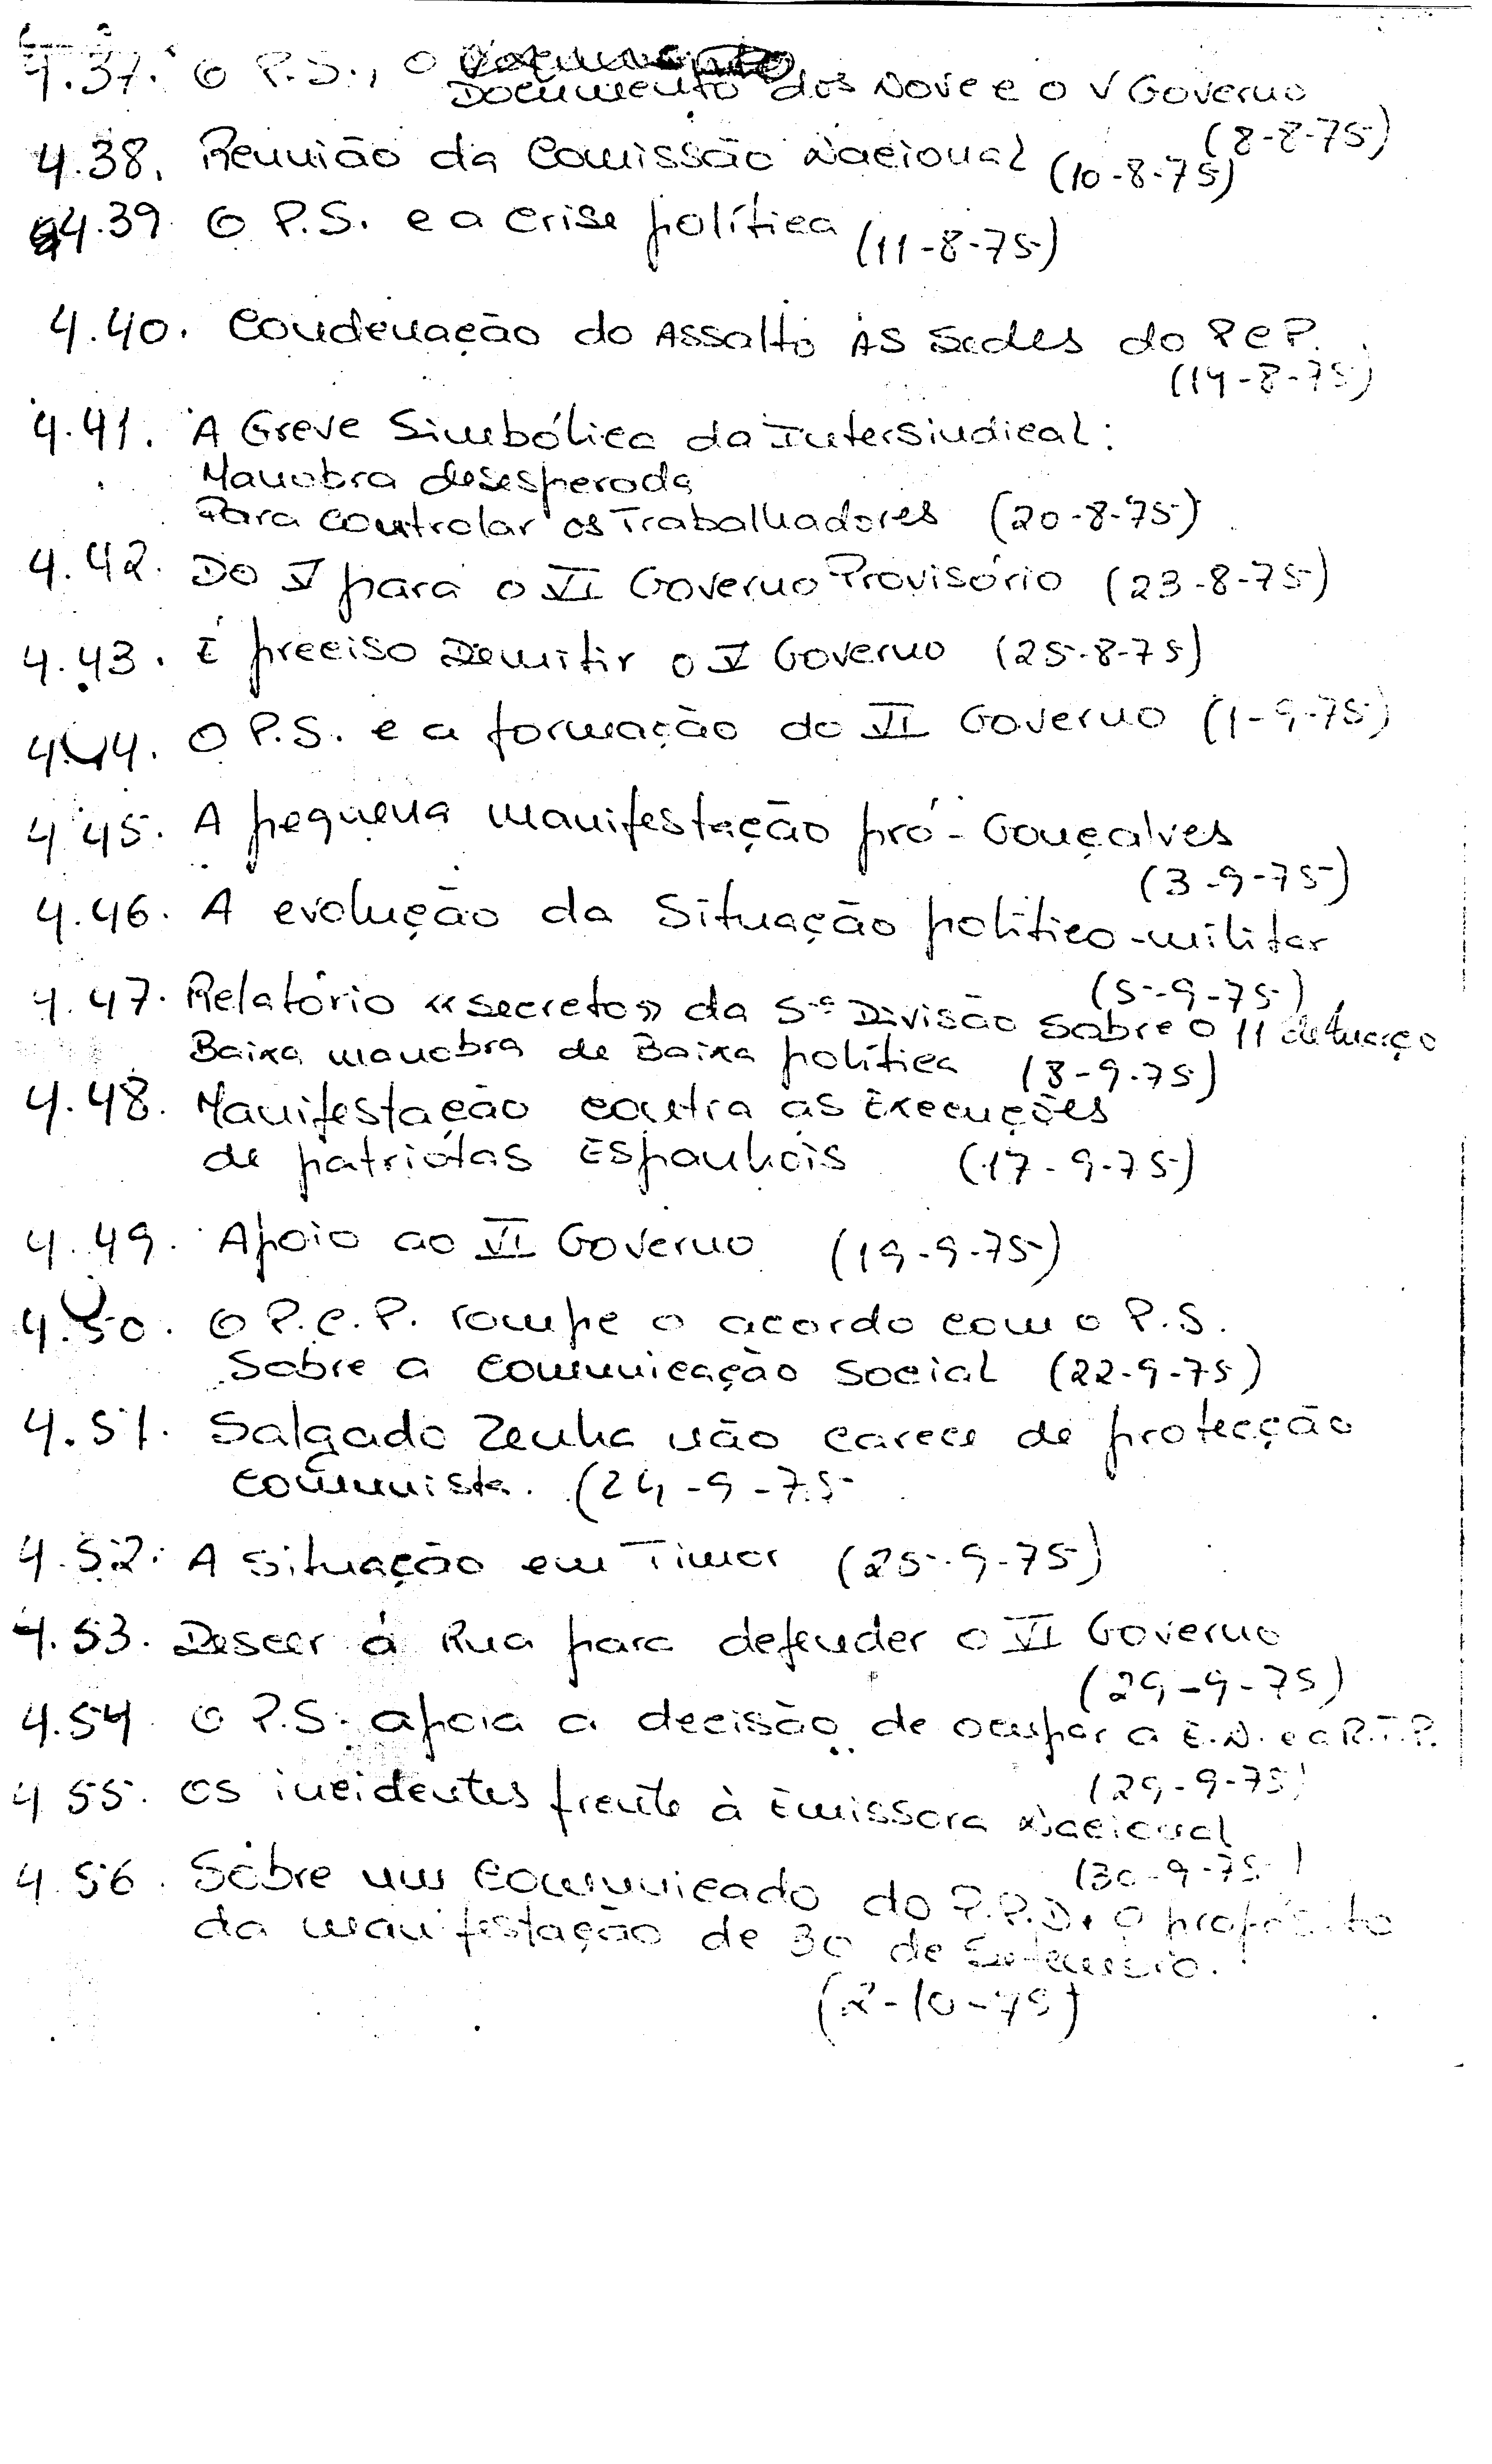 4.37. O P.S., o
Documento dos Nove e o V Governo
(8-8-75)
4.38. Reunião da Comissão Nacional (10-8-75)
4.39 O P.S. e a crise política (11-8-75)
4.40. Condenação do Assalto às Sedes do PCP.
(14-8-75)
4.41. A Greve Simbólica da Intersindical:
Manobra desesperada
Para controlar os Trabalhadores (20-8-75)
4.42. Do V para o VI Governo Provisório (23-8-75)
4.43. É preciso Demitir o V Governo (25-8-75)
4.44. O P.S. e a formação do VI Governo (1-9-75)
4.45. A pequena manifestação pró-Gonçalves
(3-9-75)
4.46. A evolução da Situação político-militar
(5-9-75)
4.47. Relatório «secreto» da 5ª Divisão Sobre o 11 de Março
Baixa manobra de Baixa política (8-9-75)
4.48. Manifestação contra as Execuções
de patriotas Espanhois (17-9-75)
4.49. Apoio ao VI Governo (19-9-75)
4.50. O P.C.P. rompe o acordo com o P.S.
Sobre a comunicação Social (22-9-75)
4.51. Salgado Zenha não carece de protecção
comunista. (24-9-75
4.52. A situação em Timor (25-9-75)
4.53. Descer à Rua para defender o VI Governo
(29-9-75)
4.54 O P.S. apoia a decisão de ocupar a E.N. e a R.T.P.
(29-9-75)
4.55. Os incidentes frente à Emissora Nacional
(30-9-75)
4.56. Sobre um comunicado do P.P.D. O propósito
da manifestação de 30 de Setembro.
(2-10-75)